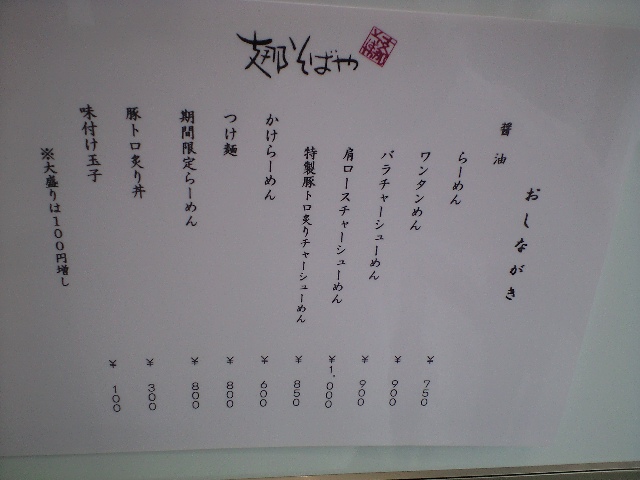 支那そばや
おしながき
醤油
らーめん ￥750
ワンタンめん ￥900
バラチャーシューめん ￥900
肩ロースチャーシューめん ￥1,000
特製豚トロ炙りチャーシューめん ￥850
かけらーめん ￥600
つけ麺 ￥800
期間限定らーめん ￥800
豚トロ炙り丼 ￥300
味付け玉子 ￥100
※大盛りは100円増し